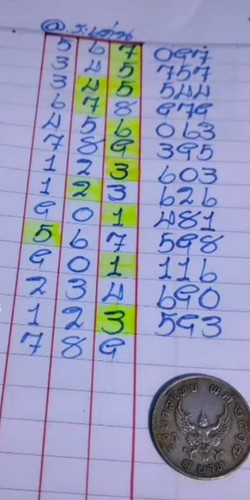 5 6 7 097
3 4 5 757
3 4 5 544
6 7 8 979
4 5 6 063
7 8 9 395
1 2 3 603
1 2 3 626
9 0 1 481
5 6 7 598
9 0 1 116
2 3 4 690
1 2 3 593
7 8 9